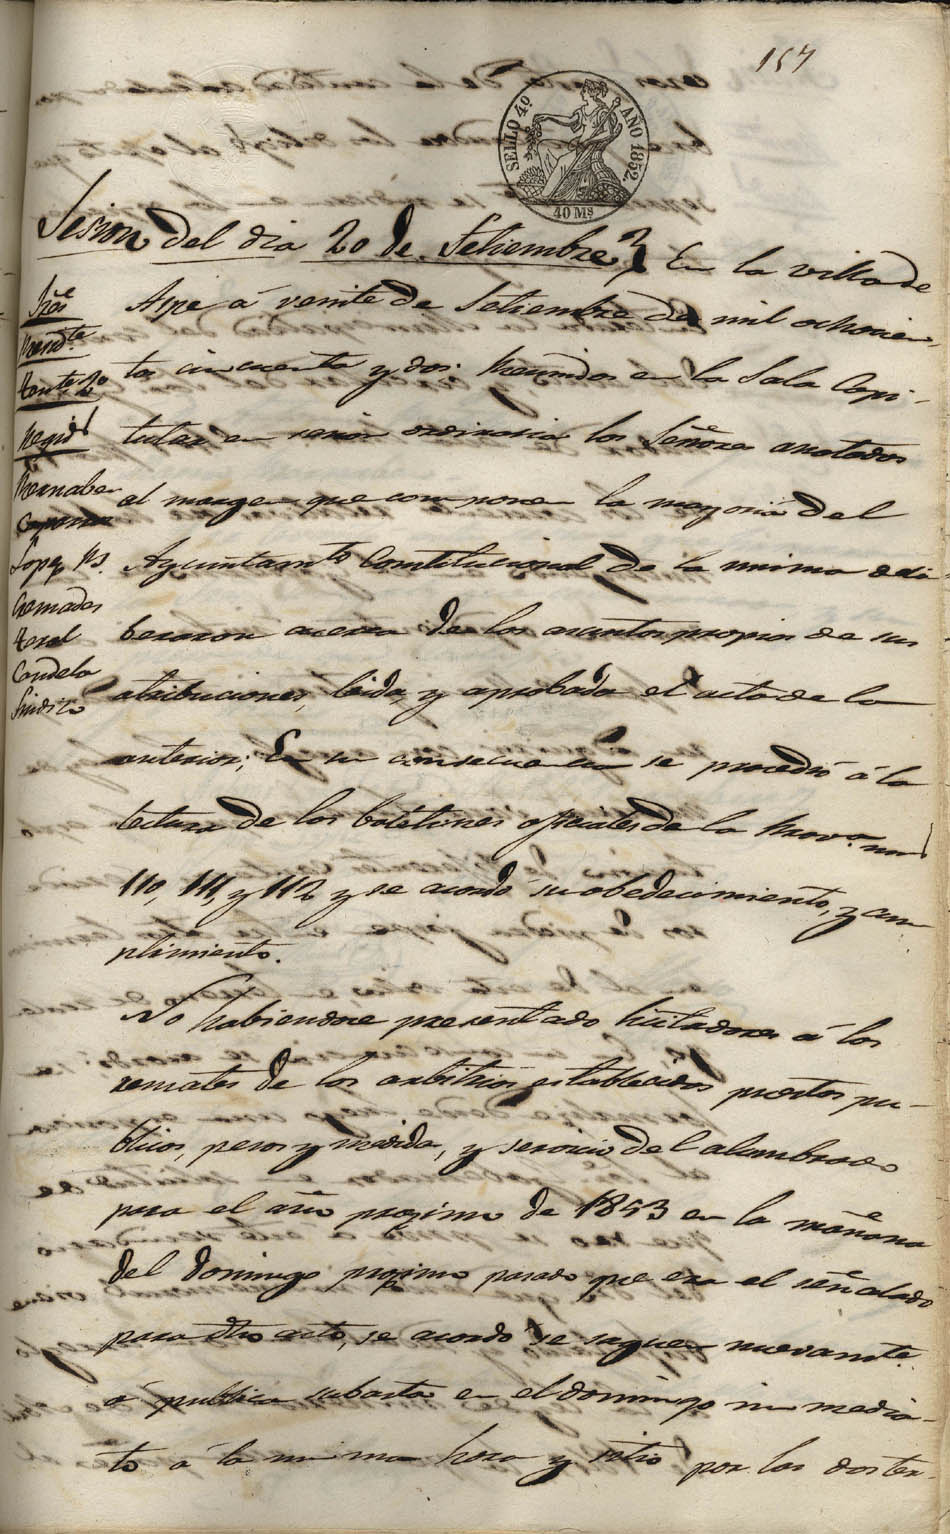 157
SELLO 4º AÑO 1852.
40 Ms
Sesion del dia 20 de Setiembre } En la villa de
Sres
Presidte
Regid
Bernabe
Lopez
Cremades
Candela
Sindico
Aspe á veinte de Setiembre de mil ochocien-
tos cincuenta y dos: Reunidos en la Sala Capi-
tular en sesion ordinaria los Señores anotados
al margen que componen la mayoria del
Ayuntamto Constitucional de la misma deli-
beraron acerca de los asuntos propios de sus
atribuciones, leida, y aprobada el acta de la
anterior; En su consecuencia se procedió á la
lectura de los boletines oficiales de la Prova. num
110, 111, y 112 y se acordó su obedecimiento, y cum
plimiento.
No habiendose presentado licitadores á los
remates de los arbitrios establecidos puestos pu-
blicos, pesos y medida, y servicio del alumbrado
para el año proximo de 1853 en la mañana
del domingo proximo pasado que era el señalado
para dho acto, se acordó se saquen nuevamte.
á publica subasta en el domingo inmedia-
to á la misma hora y sitio por las dos ter-